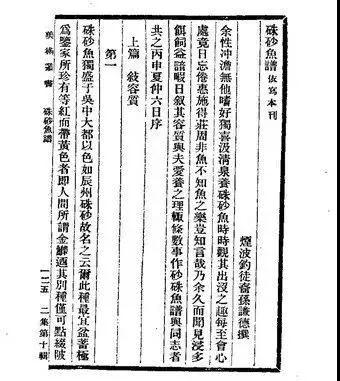 硃砂魚譜 依寫本刊
煙波釣徒裔孫謙德撰
余性沖澹無他嗜好獨喜汲清泉養硃砂魚時時觀其出沒之趣每至會心
處竟日忘倦惠施得莊周非魚不知魚之樂豈知言哉乃余久而聞見浸多
餌飼益諳暇日敘其容質與夫愛養之理輒條數事作硃砂魚譜與同志者
共之丙申夏仲六日序
上篇 敍容質
第一
硃砂魚獨盛于吳中大都以色如辰州硃砂故名之云爾此種最宜盆蓄極
為鑒家所珍有等紅而帶黃色者即人間所謂金鯽迺其別種僅可點綴陂
美術叢書 硃砂魚譜 一二五 二集第十輯